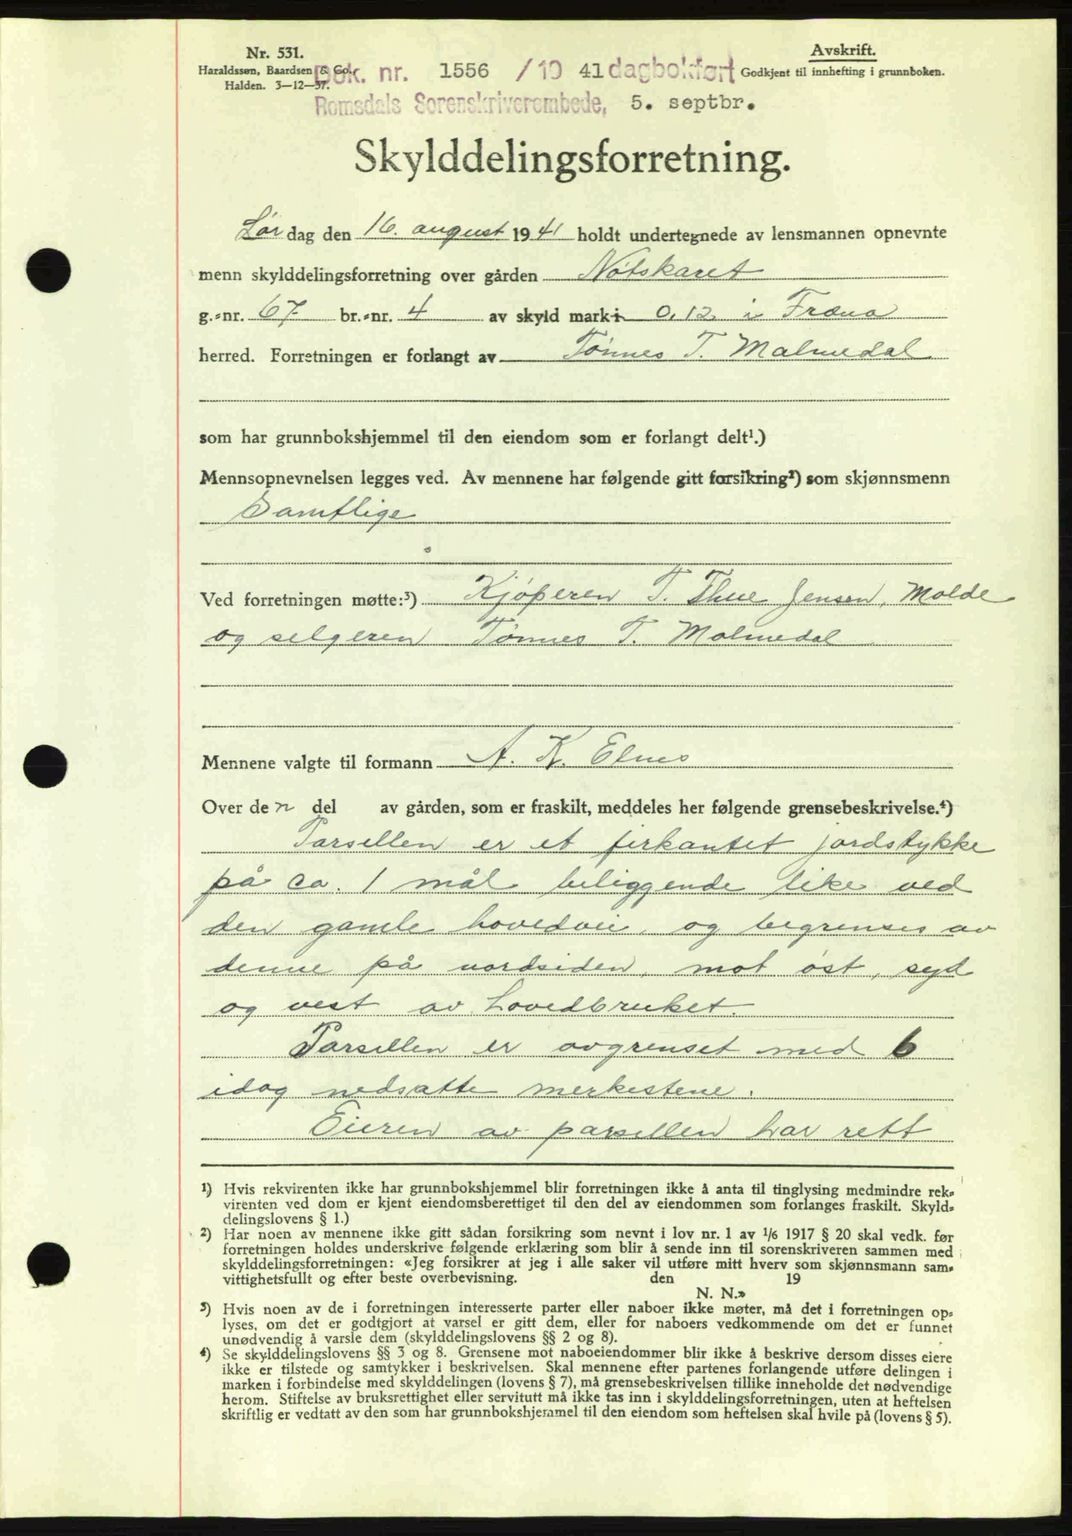 Nr. 531.
Haraldssøn, Baardsen & Co.
Halden. 3—12—37.
Avskrift.
Godkjent til innhefting i grunnboken.
Dok. nr. 1556 /19 41 dagbokført
Romsdals Sorenskriverembede, 5. septbr.
Skylddelingsforretning.
Lørdag den 16. august 1941 holdt undertegnede av lensmannen opnevnte
menn skylddelingsforretning over gården Nøtskaret
g.-nr. 67 br.-nr. 4 av skyld mark 0,12 i Fræna
herred. Forretningen er forlangt av Tønnes T. Malmedal
som har grunnbokshjemmel til den eiendom som er forlangt delt¹.)
Mennsopnevnelsen legges ved. Av mennene har følgende gitt forsikring²) som skjønnsmenn
Samtlige
Ved forretningen møtte:³) Kjøperen T. Thue Jensen, Molde
og selgeren Tønnes T. Malmedal
Mennene valgte til formann A. K. Elnes
Over den del av gården, som er fraskilt, meddeles her følgende grensebeskrivelse.⁴)
Parsellen er et firkantet jordstykke
på ca. 1 mål beliggende like ved
den gamle hovedvei, og begrenses av
denne på nordsiden, mot øst, syd
og vest av hovedbruket.
Parsellen er avgrenset med 6
idag nedsatte merkestene.
Eieren av parsellen har rett
¹) Hvis rekvirenten ikke har grunnbokshjemmel blir forretningen ikke å anta til tinglysing medmindre rek-
virenten ved dom er kjent eiendomsberettiget til den del av eiendommen som forlanges fraskilt. Skyld-
delingslovens § 1.)
²) Har noen av mennene ikke gitt sådan forsikring som nevnt i lov nr. 1 av 1/6 1917 § 20 skal vedk. før
forretningen holdes underskrive følgende erklæring som blir å sende inn til sorenskriveren sammen med
skylddelingsforretningen: «Jeg forsikrer at jeg i alle saker vil utføre mitt hverv som skjønnsmann sam-
vittighetsfullt og efter beste overbevisning. den 19
N. N.»
³) Hvis noen av de i forretningen interesserte parter eller naboer ikke møter, må det i forretningen op-
lyses, om det er godtgjort at varsel er gitt dem, eller for naboers vedkommende om det er funnet
unødvendig å varsle dem (skylddelingslovens §§ 2 og 8).
⁴) Se skylddelingslovens §§ 3 og 8. Grensene mot naboeiendommer blir ikke å beskrive dersom disses eiere
ikke er tilstede og samtykker i beskrivelsen. Skal mennene efter partenes forlangende utføre delingen i
marken i forbindelse med skylddelingen (lovens § 7), må grensebeskrivelsen tillike inneholde det nødvendige
herom. Stiftelse av bruksrettighet eller servitutt må ikke tas inn i skylddelingsforretningen, uten at heftelsen
skriftlig er vedtatt av den som har grunnbokshjemmel til den eiendom som heftelsen skal hvile på (lovens § 5).